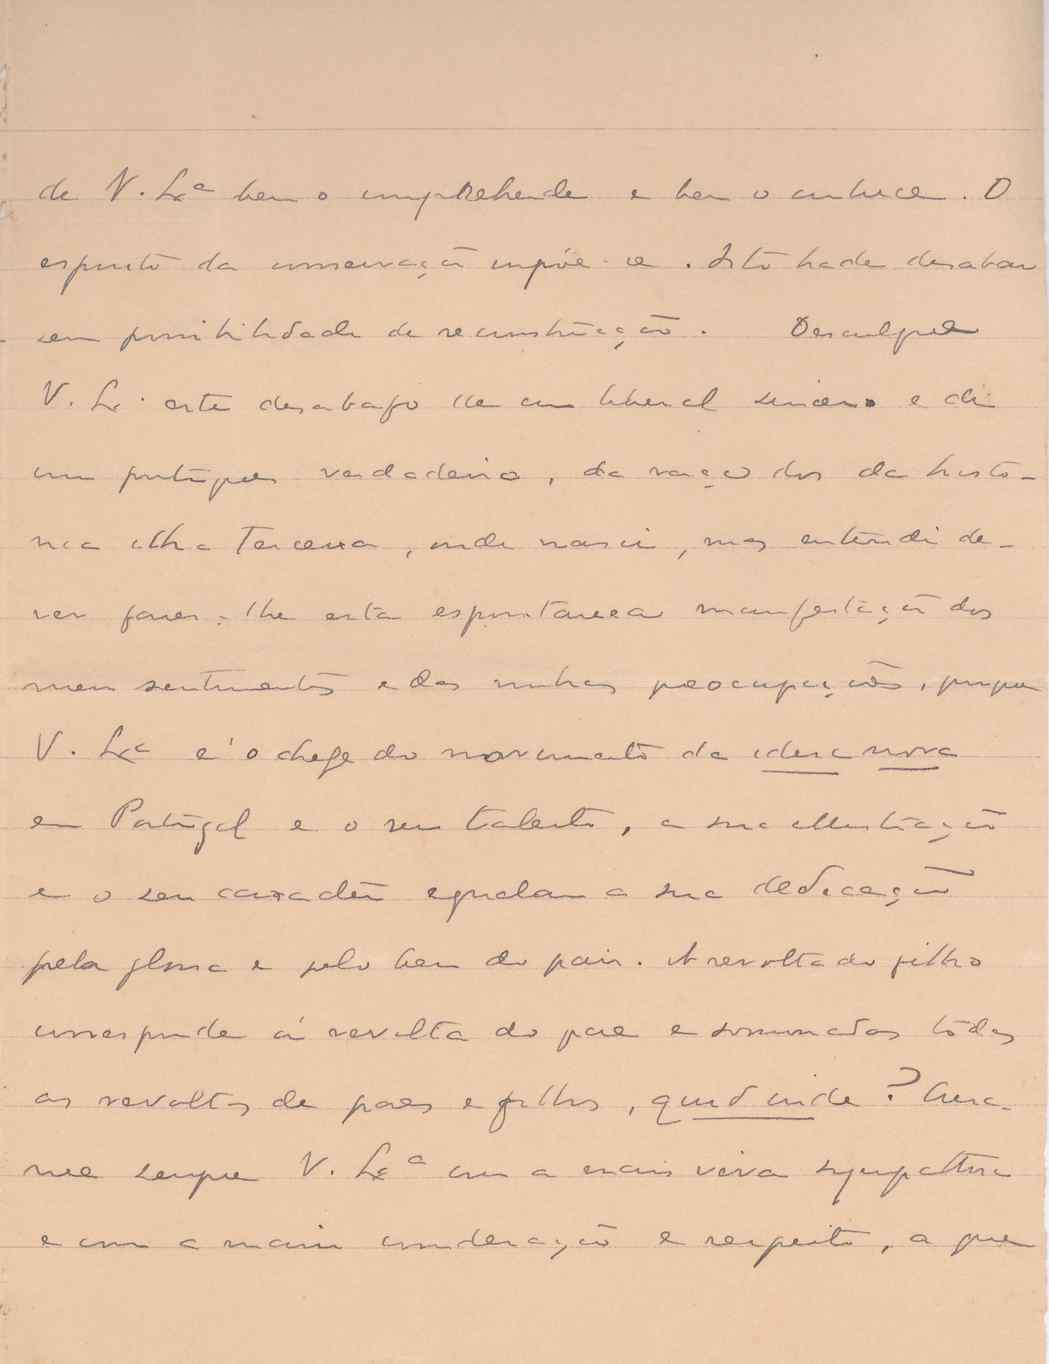 de V. Exª bem o comprehende e bem o conhece. O
espirito da conservação impõe-se. Isto hade desabar
sem possibilidade de reconstrucção. Desculpe
V. Ex. este desabafo de um liberal sincero e de
um portuguez verdadeiro, da raça dos da histo-
rica ilha Terceira, onde nasci, mas entendi de-
ver fazer-lhe esta espontanea manifestação dos
meus sentimentos e das minhas preocupações, porque
V. Exª e' o chefe do movimento da idea nova
em Portugal e o seu talento, a sua illustração
e o seu caracter egualam a sua dedicação
pela gloria e pelo bem do paiz. A revolta do filho
corresponde á revolta do pae e sommadas todas
as revoltas de paes e filhos, quid inde? Creia-
me sempre V. Exª com a mais viva sympathia
e com a maior consideração e respeito, a que